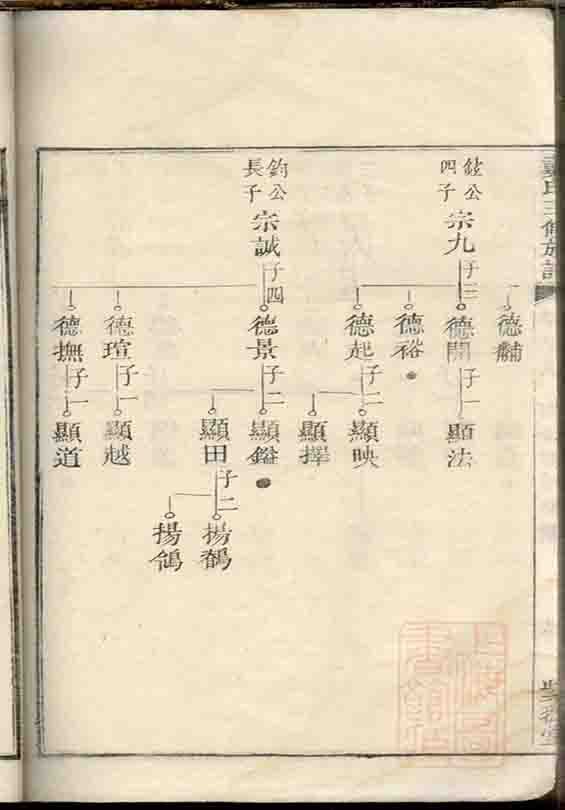 氏三修族譜
德黼
鍷公
四子
宗九
子三
德開
子一
顯法
德裕
德起
子二
顯映
顯擇
鈞公
長子
宗誠
子四
德景
子二
顯鎰
顯田
子二
揚鶴
揚鴿
德瑄
子一
顯越
德撫
子一
顯道